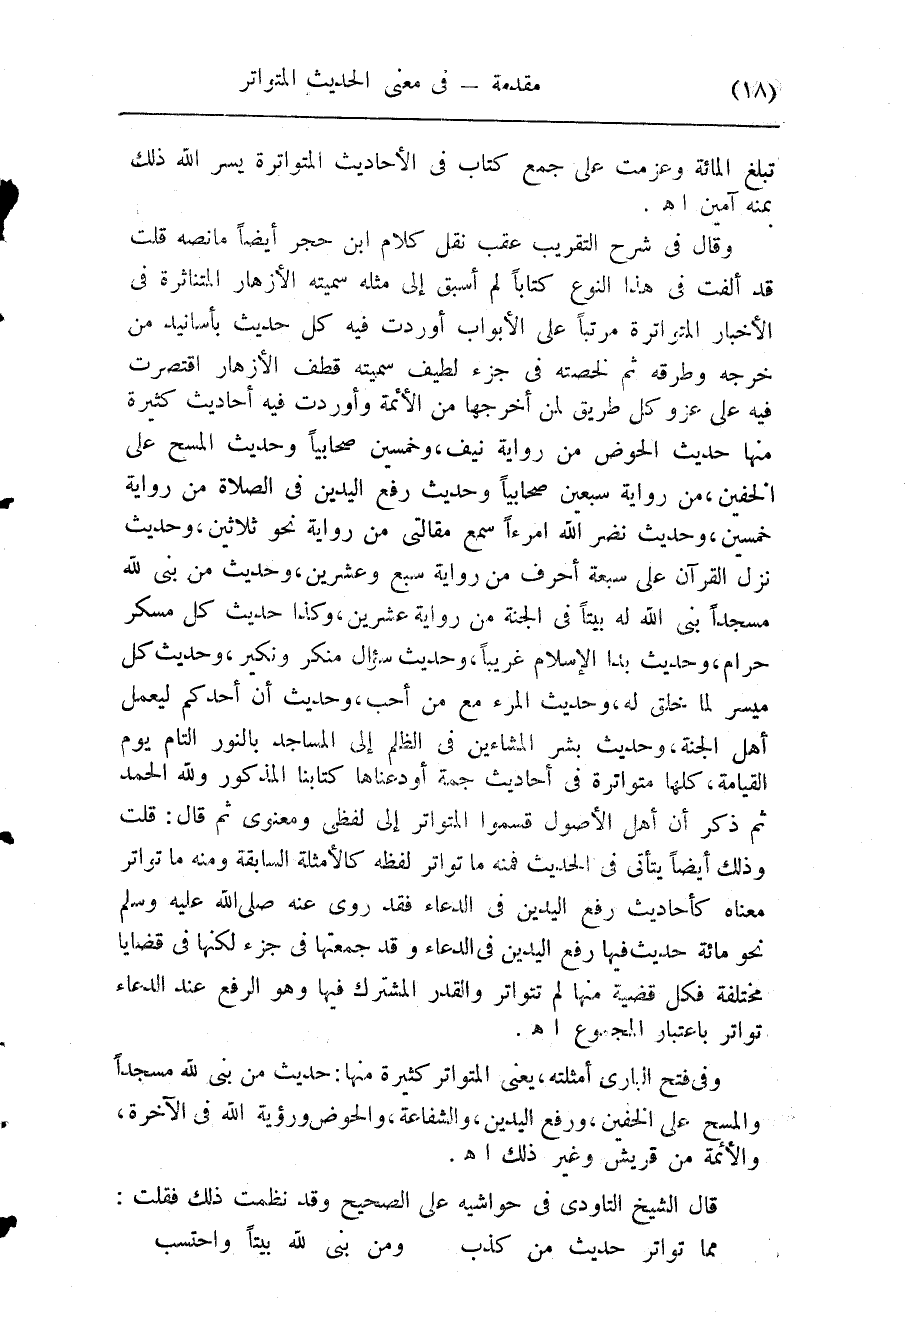 (١٨) مقدمة – فى معنى الحديث المتواتر
تبلغ المائة وعزمت على جمع كتاب فى الأحاديث المتواترة يسر الله ذلك
بمنه آمين ا ه .
وقال فى شرح التقريب عقب نقل كلام ابن حجر أيضاً مانصه قلت
قد ألفت فى هذا النوع كتاباً لم أسبق إلى مثله سميته الأزهار المتناثرة فى
الأخبار المتواترة مرتباً على الأبواب أوردت فيه كل حديث بأسانيد من
خرجه وطرقه ثم لخصته فى جزء لطيف سميته قطف الأزهار اقتصرت
فيه على عزو كل طريق لمن أخرجها من الأئمة وأوردت فيه أحاديث كثيرة
منها حديث الحوض من رواية نيف، وخمسين صحابياً وحديث المسح على
الخفين، من رواية سبعين صحابياً وحديث رفع اليدين فى الصلاة من رواية
خمسين، وحديث نضر الله امرءاً سمع مقالتى من رواية نحو ثلاثين، وحديث
نزل القرآن على سبعة أحرف من رواية سبع وعشرين، وحديث من بنى لله
مسجداً بنى الله له بيتاً فى الجنة من رواية عشرين، وكذا حديث كل مسكر
حرام، وحديث بدا الإسلام غريباً، وحديث سؤال منكر ونكير، وحديث كل
ميسر لما خلق له، وحديث المرء مع من أحب، وحديث أن أحدكم ليعمل
أهل الجنة، وحديث بشر المشاءين فى الظلم إلى المساجد بالنور التام يوم
القيامة، كلها متواترة فى أحاديث جمة أودعناها كتابنا المذكور ولله الحمد
ثم ذكر أن أهل الأصول قسموا المتواتر إلى لفظى ومعنوى ثم قال : قلت
وذلك أيضاً يتأتى فى الحديث فمنه ما تواتر لفظه كالأمثلة السابقة ومنه ما تواتر
معناه كأحاديث رفع اليدين فى الدعاء فقد روى عنه صلى الله عليه وسلم
نحو مائة حديث فيها رفع اليدين فى الدعاء و قد جمعتها فى جزء لكنها فى قضايا
مختلفة فكل قضية منها لم تتواتر والقدر المشترك فيها وهو الرفع عند الدعاء
تواتر باعتبار المجموع ا ه .
وفى فتح البارى أمثلته، يعنى المتواتر كثيرة منها : حديث من بنى لله مسجداً
والمسح على الخفين، ورفع اليدين، والشفاعة، والحوض ورؤية الله فى الآخرة،
والأئمة من قريش وغير ذلك ا ه .
قال الشيخ التاودى فى حواشيه على الصحيح وقد نظمت ذلك فقلت :
مما تواتر حديث من كذب ومن بنى لله بيتاً واحتسب